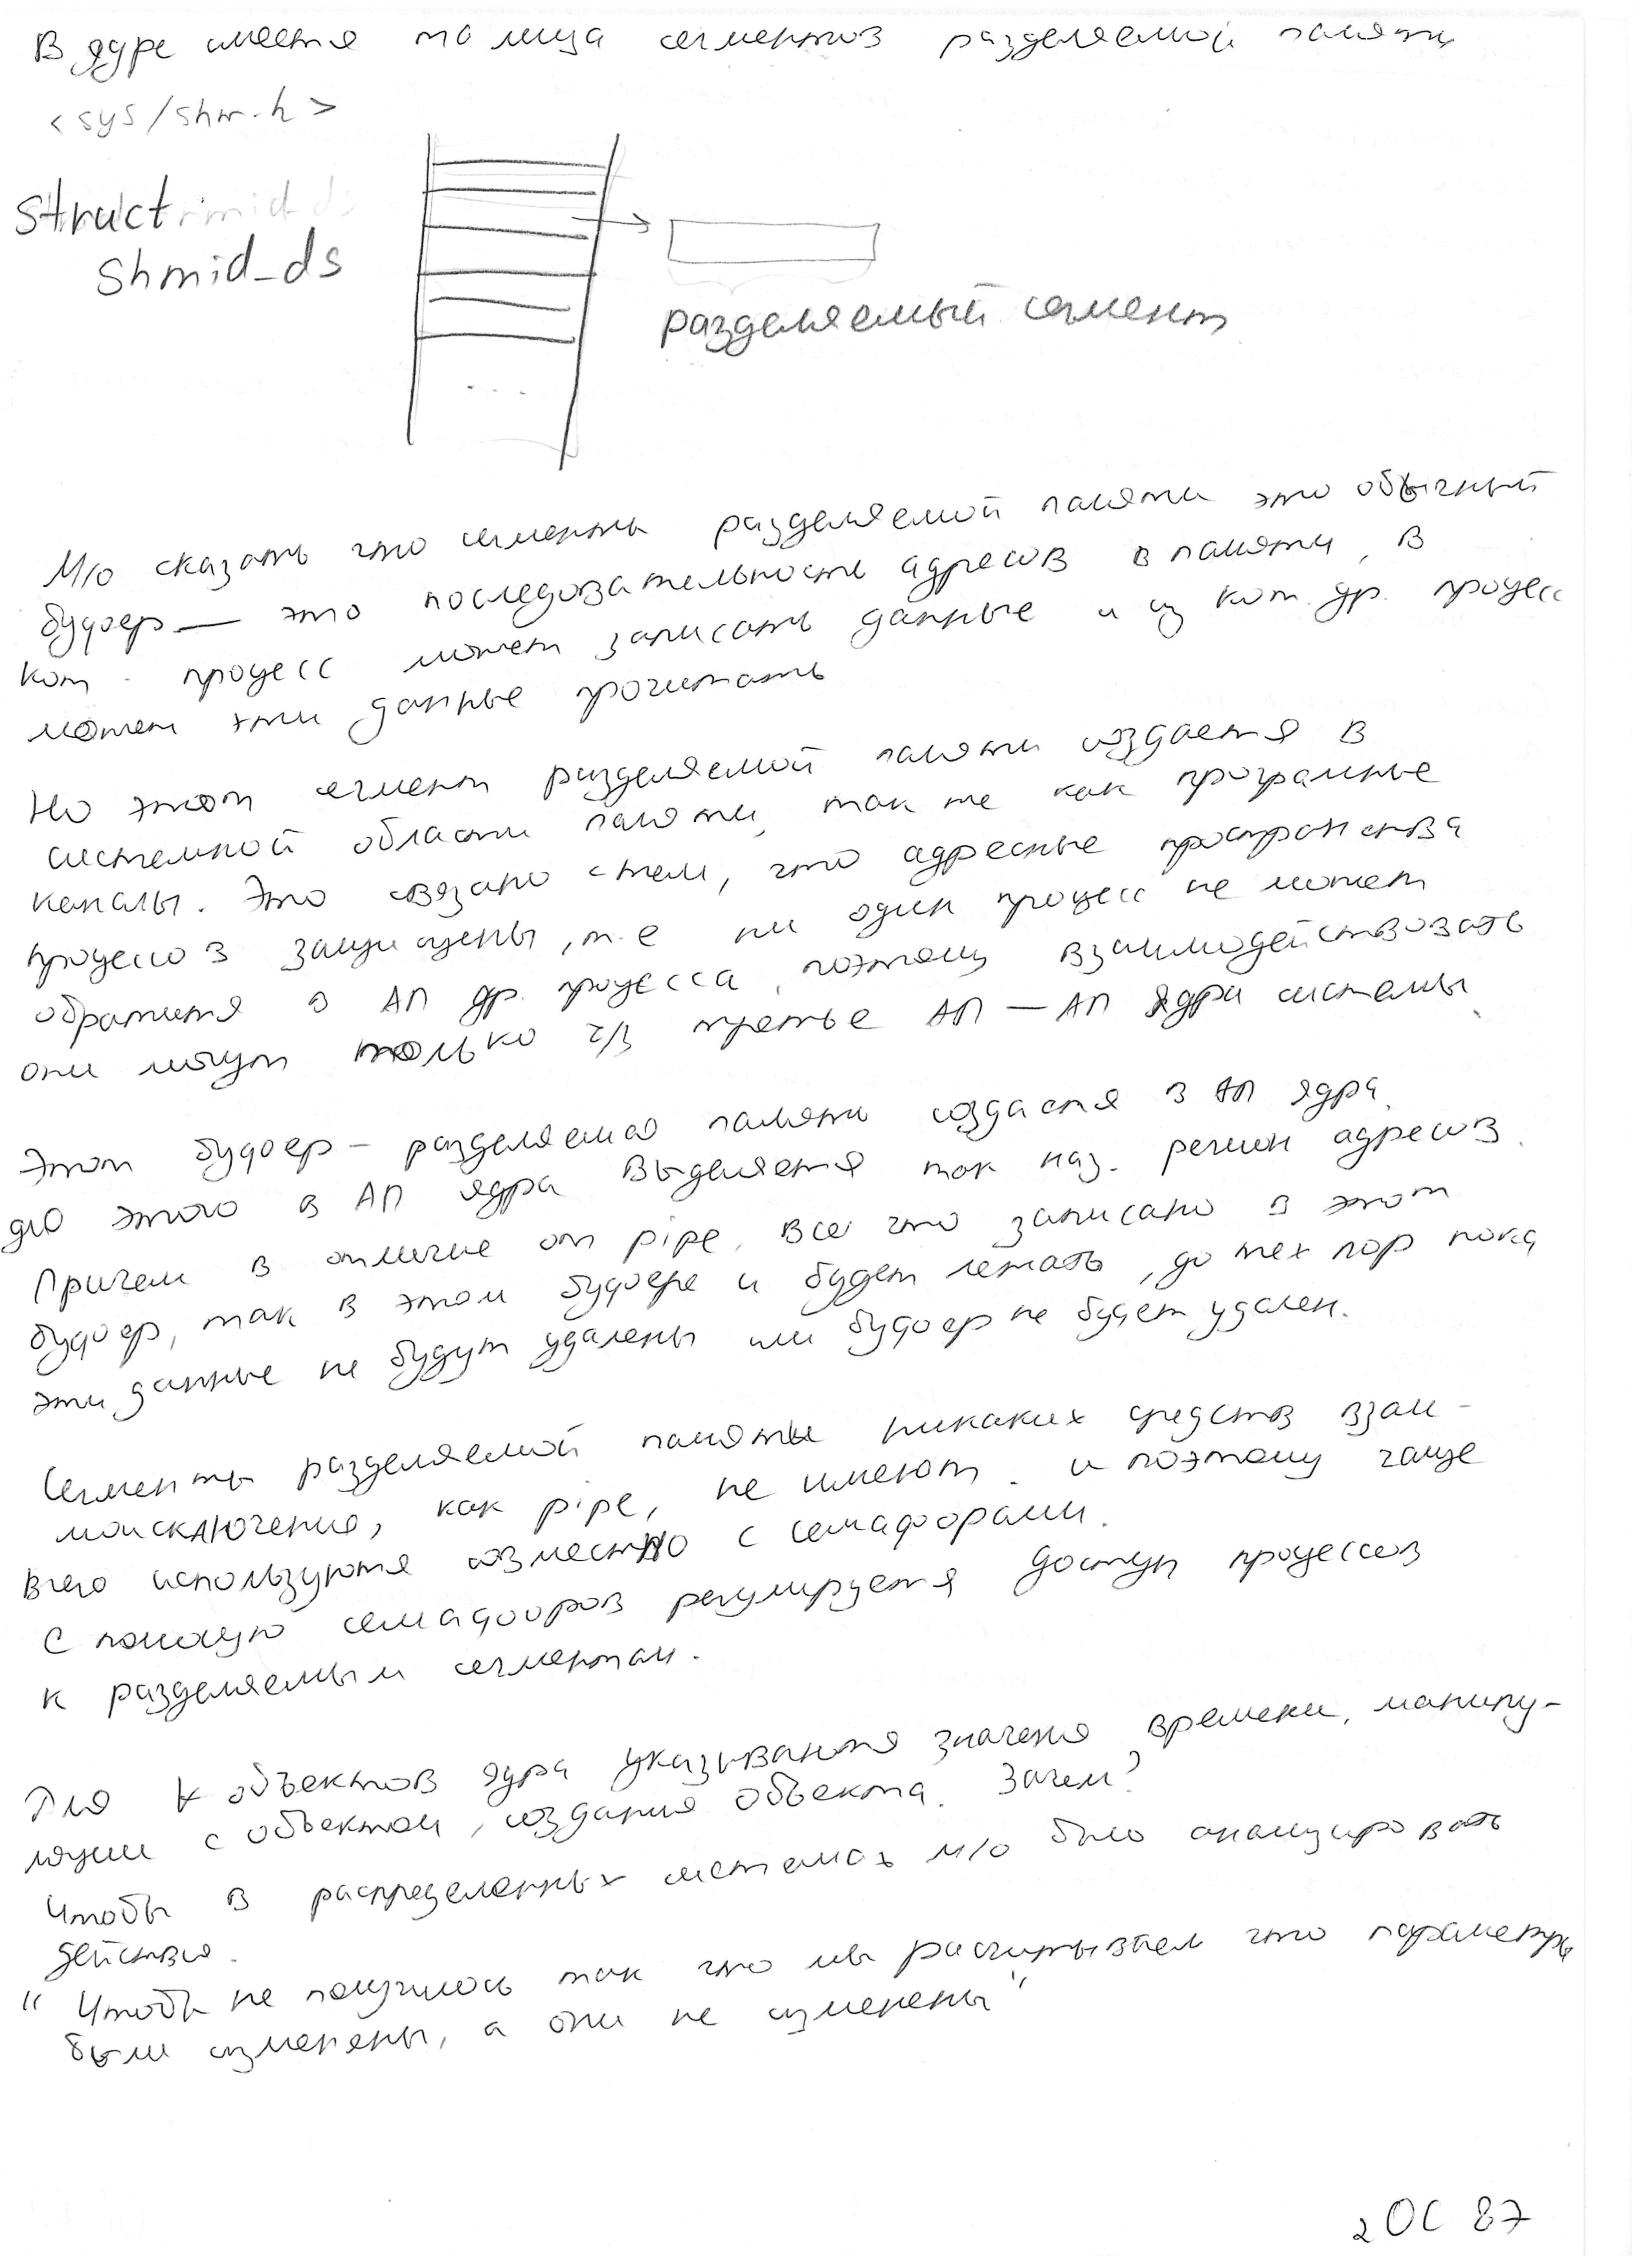 В ядре имеется таблица сегментов разделяемой памяти
<sys/shm.h>
struct
shmid_ds
разделяемый сегмент
...
М/о сказать что сегменты разделяемой памяти это обычный
буфер — это последовательность адресов в памяти, в
кот. процесс может записать данные и из кот. др. процесс
может эти данные прочитать
Но этот сегмент разделяемой памяти создается в
системной области памяти, так же как програмные
каналы. Это связано с тем, что адресные пространства
процессов защищены, т.е ни один процесс не может
обратится в АП др. процесса, поэтому взаимодействовать
они могут только ч/з третье АП — АП ядра системы.
Этот буфер – разделяемая память создается в АП ядра.
для этого в АП ядра выделяется так наз. регион адресов.
Причем в отличие от pipe, все что записано в этот
буфер, так в этом буфере и будет лежать, до тех пор пока
эти данные не будут удалены или буфер не будет удален.
Сегменты разделяемой памяти никаких средств взаи-
моисключения, как pipe, не имеют. и поэтому чаще
всего используются совместно с семафорами.
С помощью семафоров регулируется доступ процессов
к разделяемым сегментам.
Для ∀ объектов ядра указываются значения времени, манипу-
ляции с объектом, создания объекта. Зачем?
Чтобы в распределенных системах м/о было анализировать
действия.
"Чтобы не получилось так что мы расчитываем что параметры
были изменены, а они не изменены"
2 ОС 87